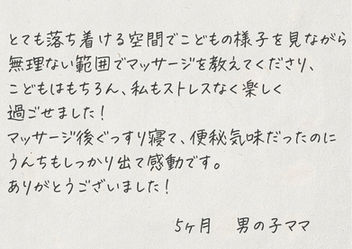 とても落ち着ける空間でこどもの様子を見ながら
無理ない範囲でマッサージを教えてくださり、
こどもはもちろん、私もストレスなく楽しく
過ごせました！
マッサージ後ぐっすり寝て、便秘気味だったのに
うんちもしっかり出て感動です。
ありがとうございました！
5ヶ月　男の子ママ